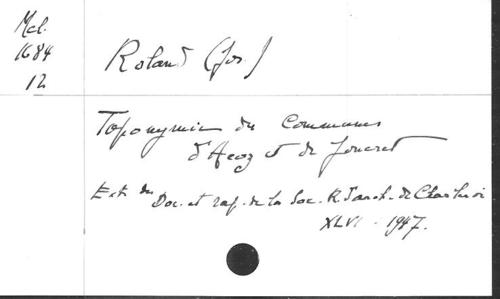 Mél.
1684
12
Roland (Jos.)
Toponymie des Communes
d'Acoz et de Joncret
Ext. des Doc. et rap. de la Soc. R. d'arch. de Charleroi
XLVI - 1947.